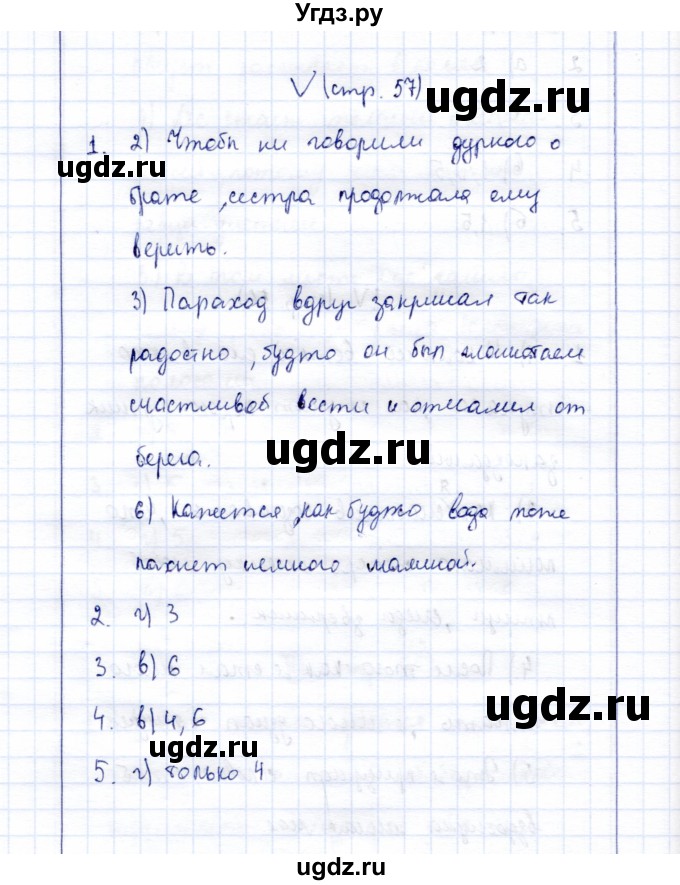 Угдз.ру
V (стр. 57)
ugdz.ru
1. 2) Чтобы ни говорили дурного о
ugdz.ru
брате, сестра продолжала ему
верить.
3) Параход вдруг закричал так
радостно, будто он был
счастливой вести и отчалил от
ugdz.ru
берега.
6) Кажется, как будто вода тоже
пахнет немного малиной.
2. г) 3
3. в) 6
ugdz.ru
4. в) 4, 6
ugdz.ru
5. г) только 4
ugdz.ru